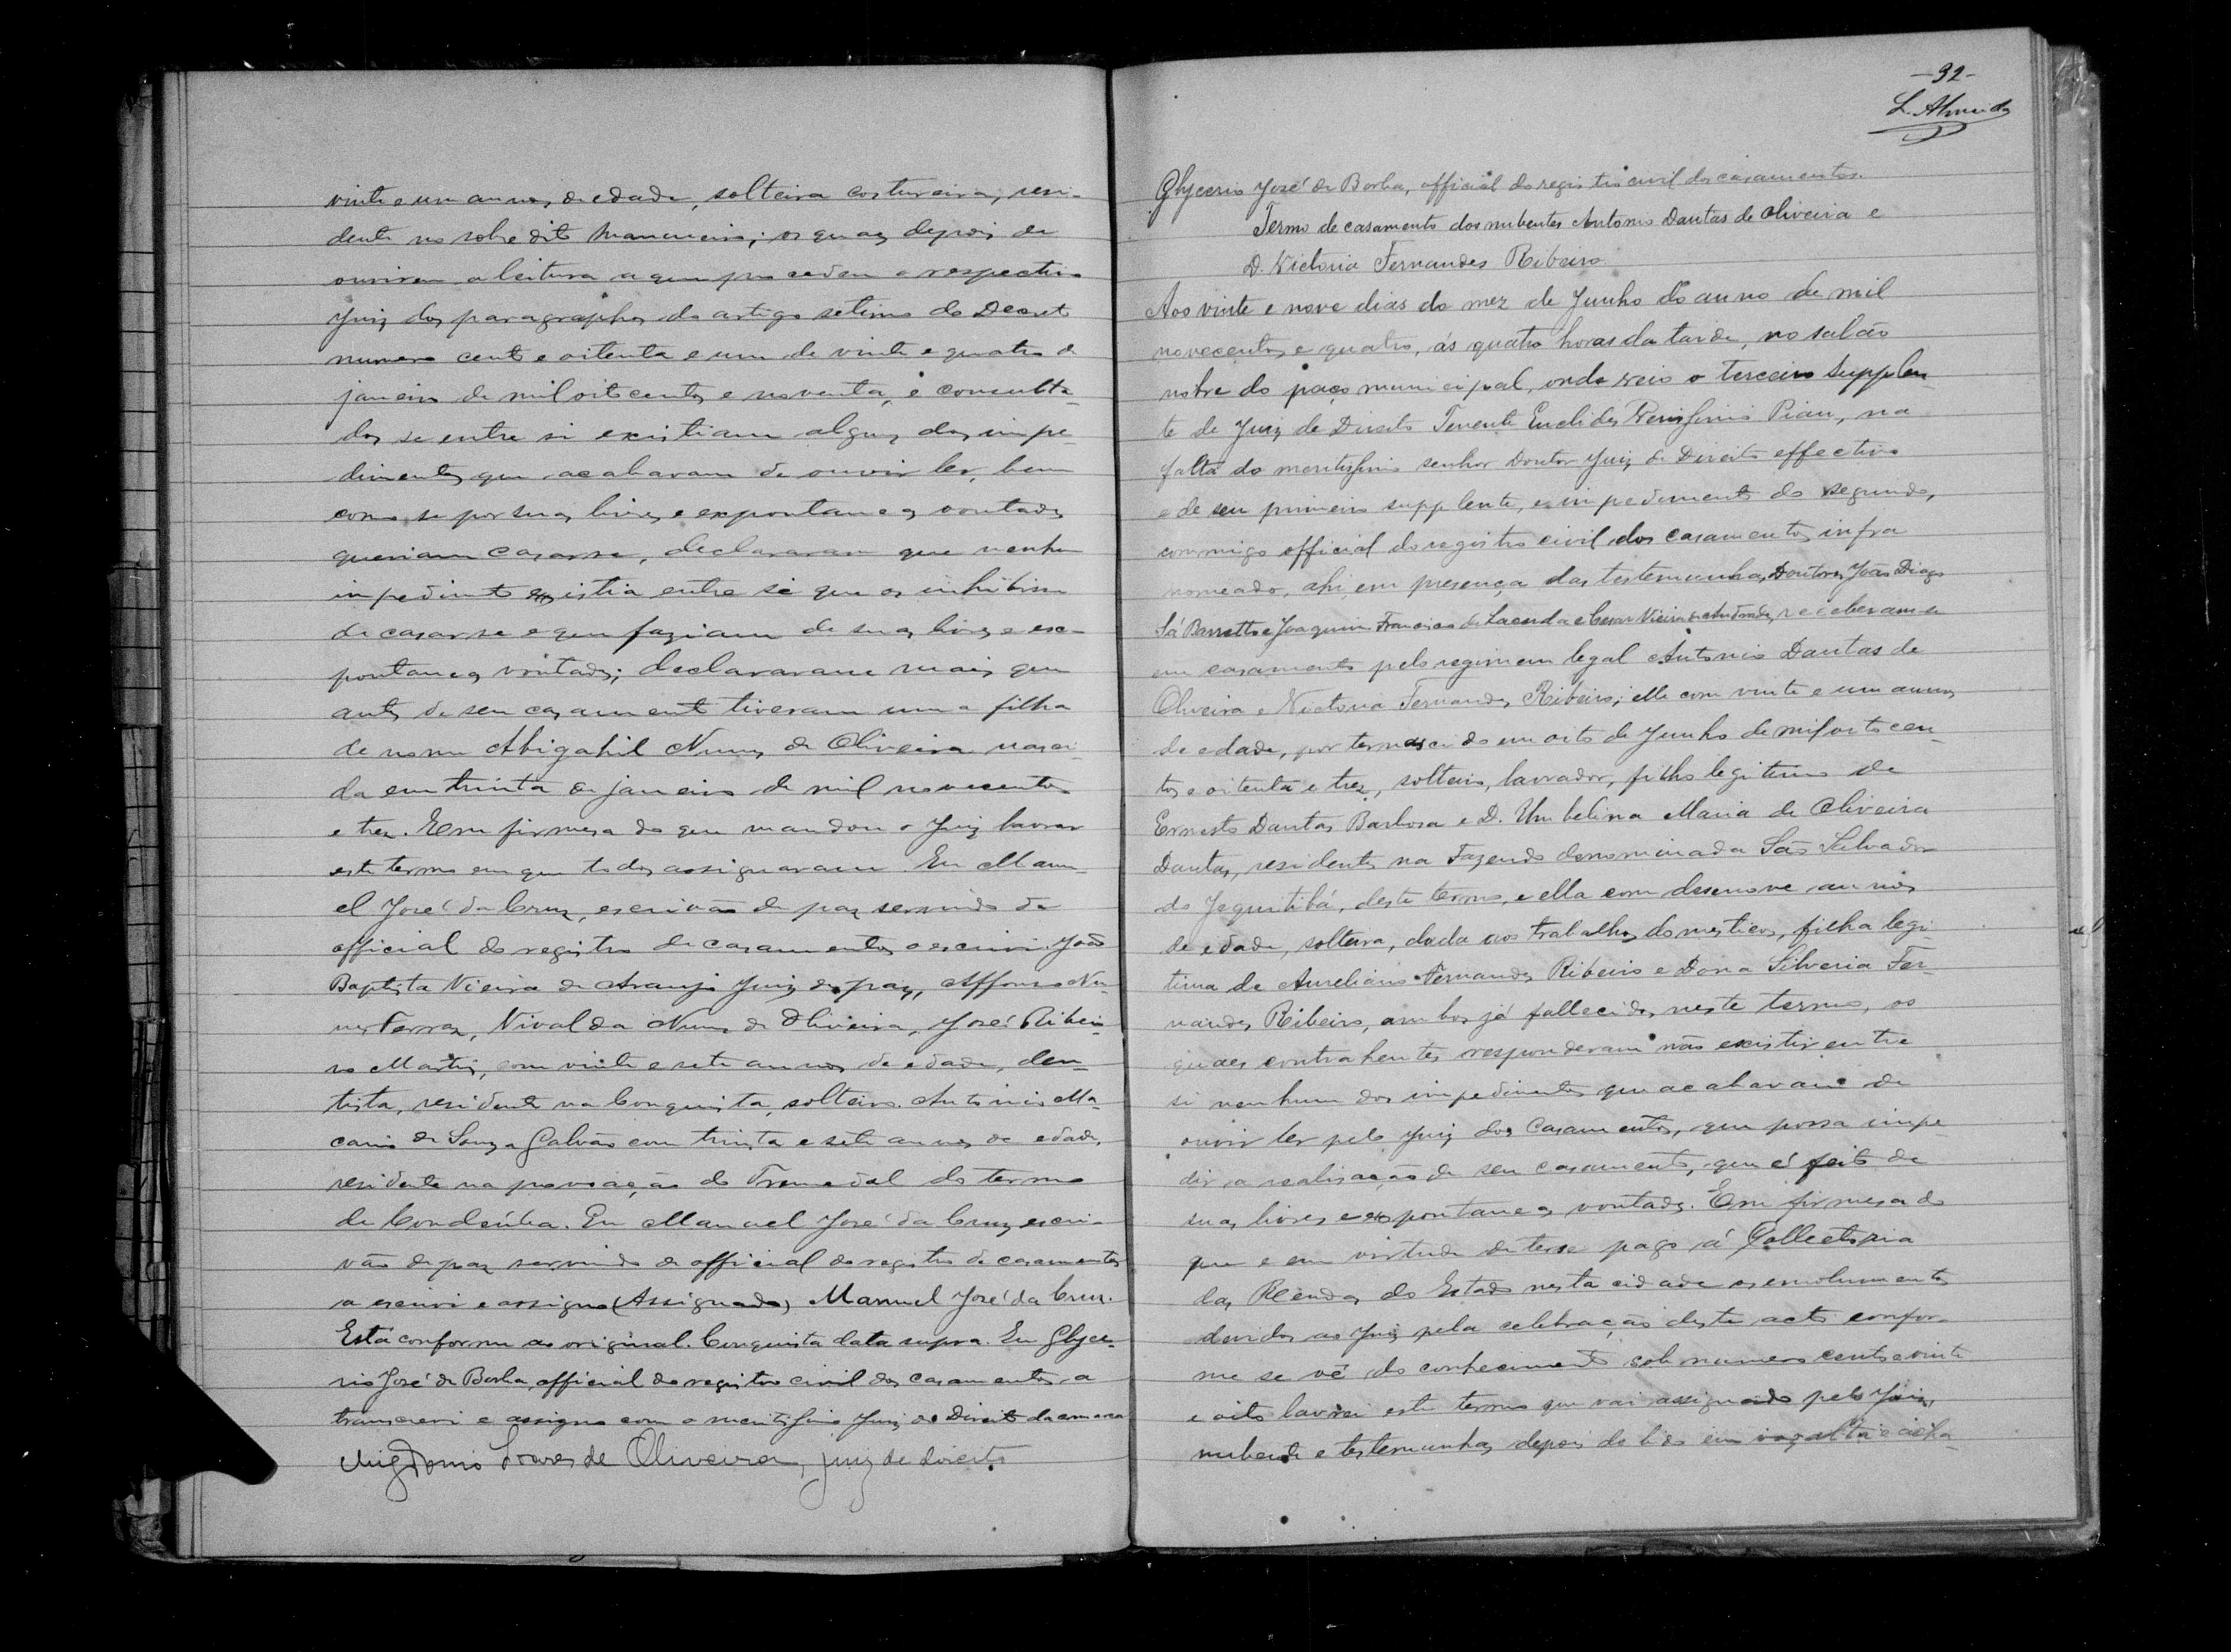 vinte e um annos de edade, solteira costureira, resi-
dente no sobredito ; os quaes depois de
ouvirem a leitura a que procedeu o respectivo
Juiz dos paragraphos do artigo setimo do Decreto
numero cento e oitenta e um de vinte e quatro de
janeiro de mil oitocentos e noventa, e consulta-
dos se entre si existiam alguns dos impe-
dimentos que acabavam de ouvir ler, bem
como se por suas livres e expontaneas vontades
queriam casar-se, declararam que nenhum
impedimento existia entre si que os inhibisse
de casar-se e que faziam de suas livres e ex-
pontaneas vontades; declararam mais que
antes de seu casamento tiveram uma filha
de nome Abigahil Nunes de Oliveira nasci-
da em trinta de janeiro de mil novecentos
e tres. Em firmesa do que mandou o Juiz lavrar
este termo em que todos assignaram. Eu Manu-
el José da Cruz, escrivão de paz servindo de
official do registro de casamentos o escrivi. João
Baptista Vieira de Araujo Juiz de paz, Affonso Nu-
nes Ferraz, Nivalda Nunes de Oliveira, José Ribei-
ro Martins, com vinte e sete annos de edade, den-
tista, residente na Conquista, solteiro. Antonio Ma-
cario de Souza Galvão com trinta e sete annos de edade,
residente na povoação do Tremedal do termo
de Condeúba. Eu Manuel José da Cruz, escri-
vão de paz servindo de official do registro de casamentos
o escrivi e assigno (Assignado) Manuel José da Cruz.
Está conforme ao original. Conquista data supra. Eu Glyce-
rio José de Borba, official do registro civil dos casamentos, a
transcrevi e assigno com o meritissimo Juiz de Direito da comarca
Soares de Oliveira, juiz de direito
-32-
L. Almeida
Glycerio José de Borba, official do registro civil dos casamentos.
Termo de casamento dos nubentes Antonio Dantas de Oliveira e
D. Victoria Fernandes Ribeiro
Aos vinte e nove dias do mez de Junho do anno de mil
novecentos e quatro, ás quatro horas da tarde, no salão
nobre do paço municipal, onde veio o terceiro Supplen-
te de Juiz de Direito Tenente Euclides Piau, na
falta do meritissimo senhor Doutor Juiz de Direito effectivo
e de seu primeiro supplente, e impedimento do segundo,
commigo official do registro civil dos casamentos infra
nomeado, ahi, em presença das testemunhas, Doutores João Diogo
Sá Barretto e Joaquim Francisco de Lacerda e Cesar Vieira de Andrade, receberam-se
em casamento pelo regimem legal Antonio Dantas de
Oliveira e Victoria Fernandes Ribeiro; elle com vinte e um annos
de edade, por ter nascido em oito de Junho de mil oitocen-
tos e oitenta e tres, solteiro, lavrador, filho legitimo de
Ernesto Dantas Barbosa e D. Umbelina Maria de Oliveira
Dantas, residentes na Fazenda denominada São Salvador
do Jequitibá, deste termo, e ella com desenove annos
de edade, solteira, dada aos trabalhos domesticos, filha legi-
tima de Aureliano Fernandes Ribeiro e Dona Silveria Fer-
nandes Ribeiro, ambos já fallecidos, neste termo, os
quaes contrahentes responderam não existir entre
si nenhum dos impedimentos que acabavam de
ouvir ler pelo Juiz dos Casamentos, que possa impe-
dir a realisação de seu casamento, que é feito de
suas livres e espontaneas vontades. Em firmesa do
que e em virtude de ter-se pago á Collectoria
das Rendas do Estado nesta cidade os emolumentos
devidos ao Juiz pela celebração deste acto confor-
me se vê do conhecimento sob numero cento e vinte
e oito lavrei este termo que vai assignado pelo Juiz,
nubentes e testemunhas, depois de lido em voz alta e acha-